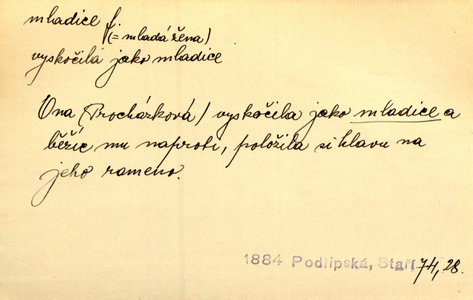 mladice f.
(= mladá žena)
vyskočila jako mladice
Ona (Procházková) vyskočila jako mladice a
běžíc mu naproti, položila si hlavu na
jeho rameno.
1884 Podlipská, Staří 74, 28.